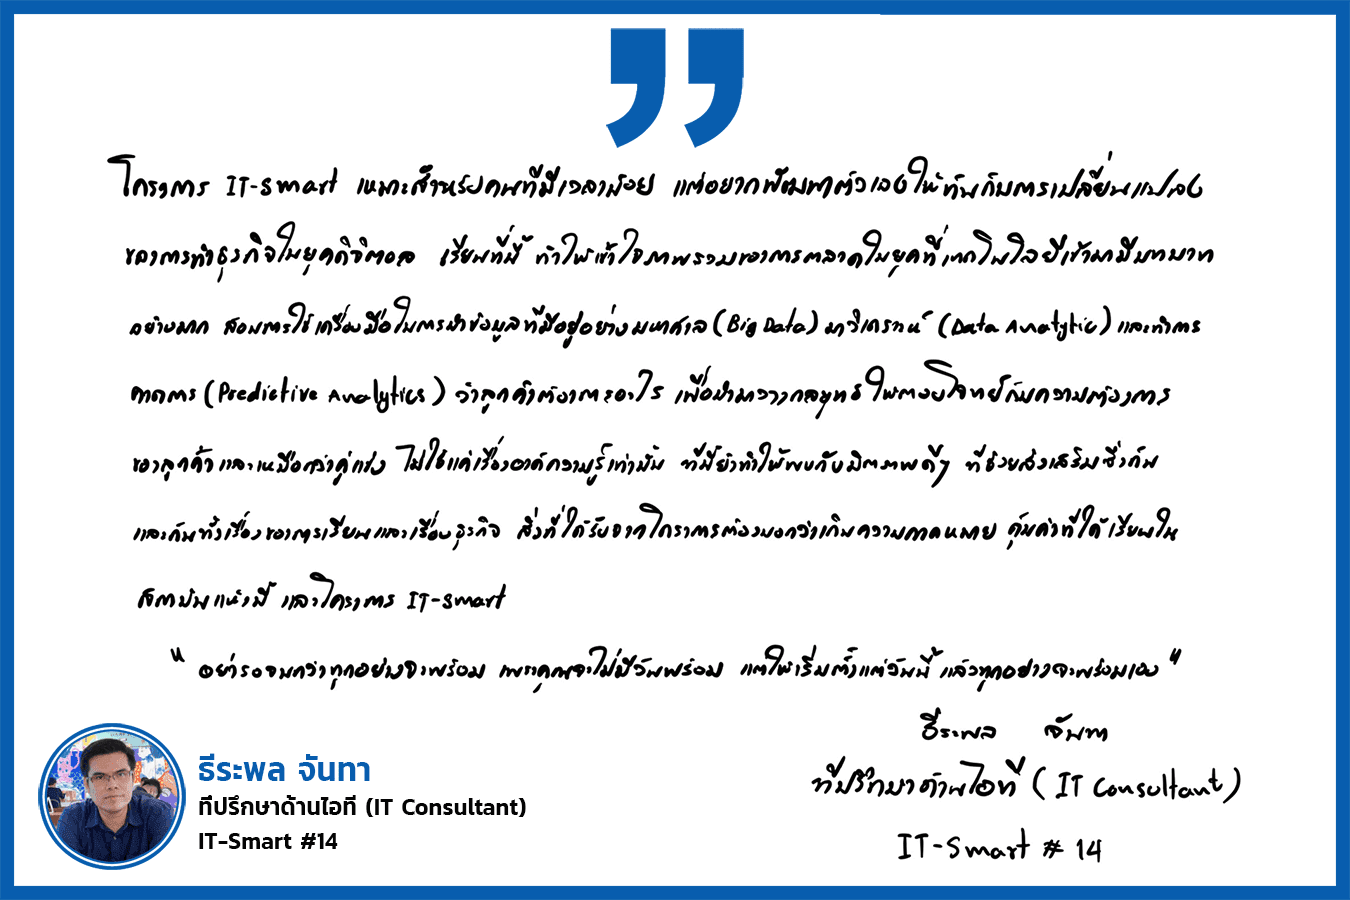 โครงการ IT-Smart เหมาะสำหรับคนที่มีเวลาน้อย แต่อยากพัฒนาตัวเองให้ทันกับการเปลี่ยนแปลง
ของการทำธุรกิจในยุคดิจิตอล เรียนที่นี่ ทำให้เข้าใจภาพรวมของการตลาดในยุคที่เทคโนโลยีเข้ามามีบทบาท
อย่างมาก สอนการใช้เครื่องมือในการนำข้อมูลที่มีอยู่อย่างมหาศาล (Big Data) มาวิเคราะห์ (Data Analytic) และทำการ
คาดการ (Predictive Analytics) ว่าลูกค้าต้องการอะไร เพื่อนำมาวางกลยุทธ์ให้ตอบโจทย์กับความต้องการ
ของลูกค้า และเหนือกว่าคู่แข่ง ไม่ใช่แค่เรื่ององค์ความรู้เท่านั้น ที่นี่ยังทำให้พบกับมิตรภาพดีๆ ที่ช่วยส่งเสริมซึ่งกัน
และกันทั้งเรื่องของการเรียนและเรื่องธุรกิจ สิ่งที่ได้รับจากโครงการต้องบอกว่าเกินความคาดหมาย คุ้มค่าที่ได้เรียนใน
สถาบันแห่งนี้ และโครงการ IT-Smart
" อย่ารอจนกว่าทุกอย่างจะพร้อม เพราะคุณจะไม่มีวันพร้อม แต่ให้เริ่มตั้งแต่วันนี้ แล้วทุกอย่างจะพร้อมเอง "
ธีระพล จันทา
ที่ปรึกษาด้านไอที (IT Consultant)
IT-Smart # 14
ธีระพล จันทา
ที่ปรึกษาด้านไอที (IT Consultant)
IT-Smart #14